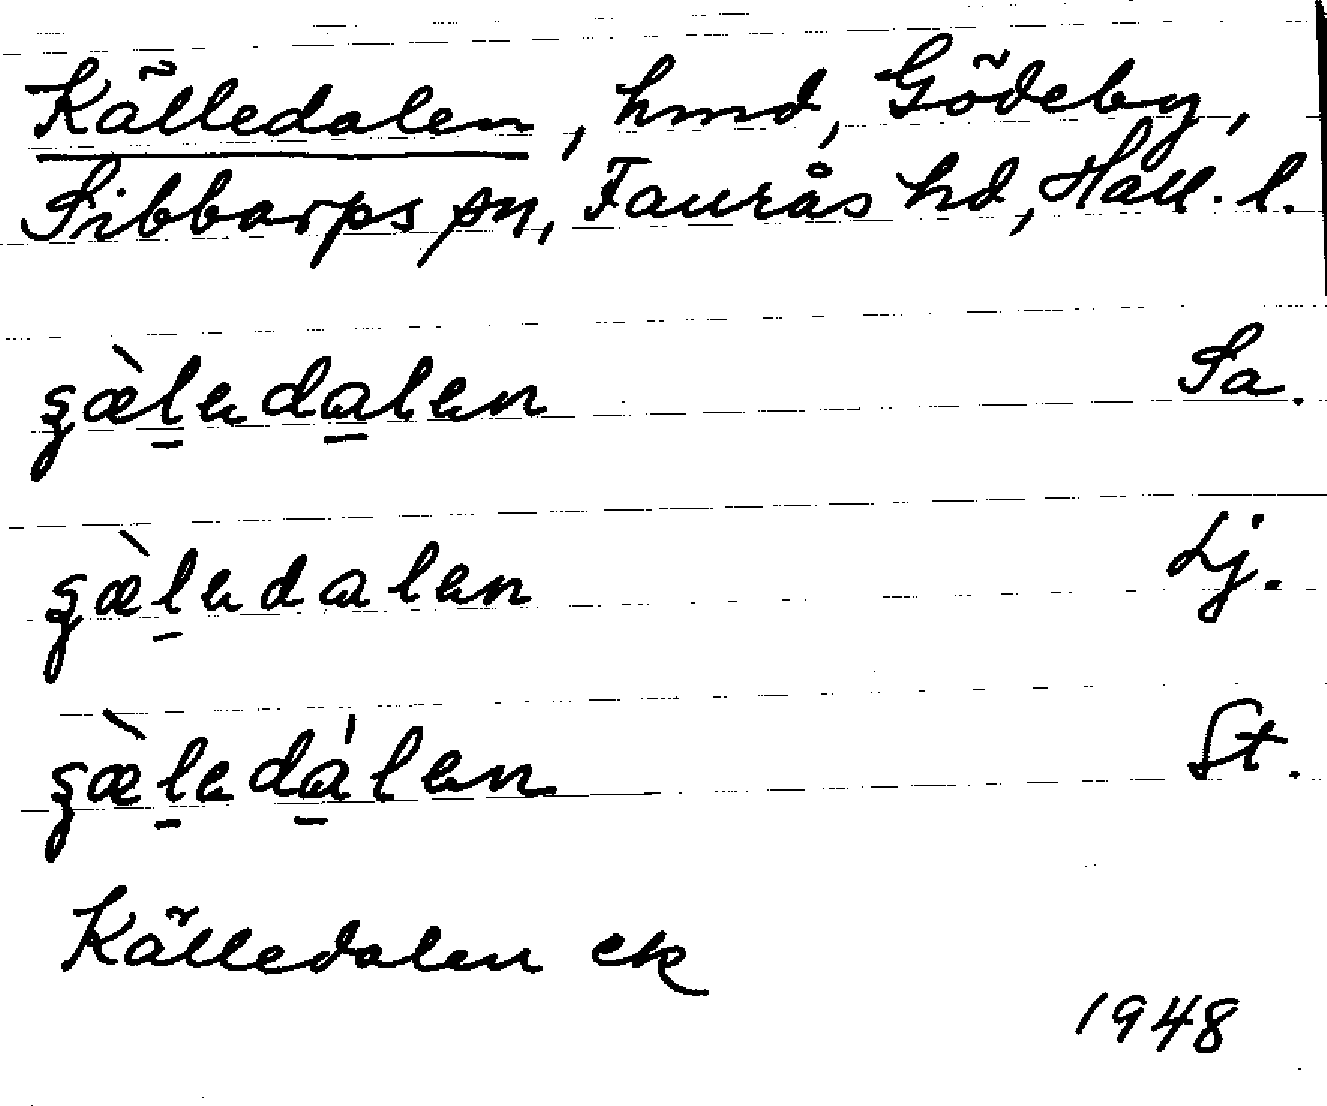 Källedalen, hmd, Gödeby,
Sibbarps sn, Faurås hd, Hall. l.
ʂæ̀l̠əda̠lən Sa.
ʂæ̀l̠ədalən Lj.
ʂæ̀l̠ədá̠lən St.
Källedalen ek
1948